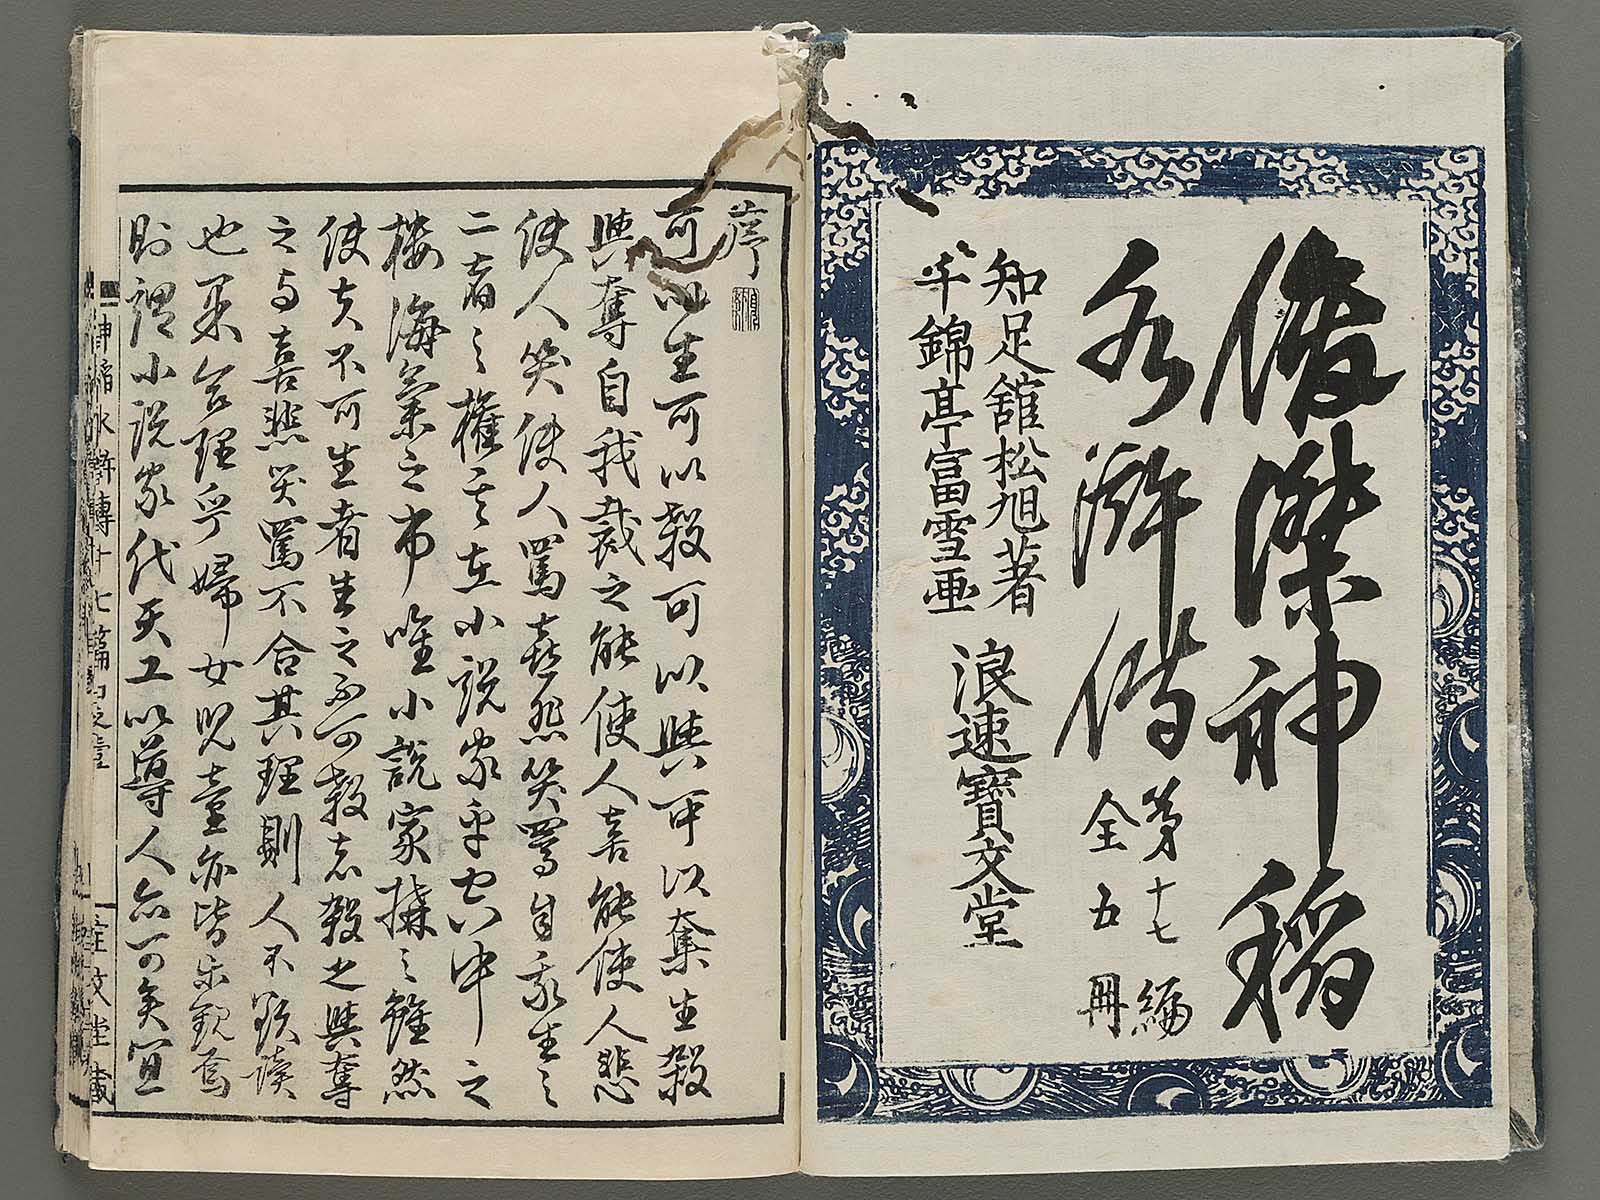 俊傑神稲
水滸傳
第十七編
全五冊
知足舘松旭著
一千錦亭富雪画
浪速寶文堂
序
可以生可以殺可以與可以奪生殺
與奪自我裁之能使人喜能使人悲
使人笑使人罵喜怒笑罵自我生之
二者之權其在小説家乎空中之
楼海氣之市唯小説家搆之雖然
使夫不可生者生之不可殺者殺之與奪
之与喜悲笑罵不合其理則人不欲読
也果合理乎婦女児童亦皆楽観焉
則謂小説家代天工以導人亦可矣宜
神稲水滸傳十七篇